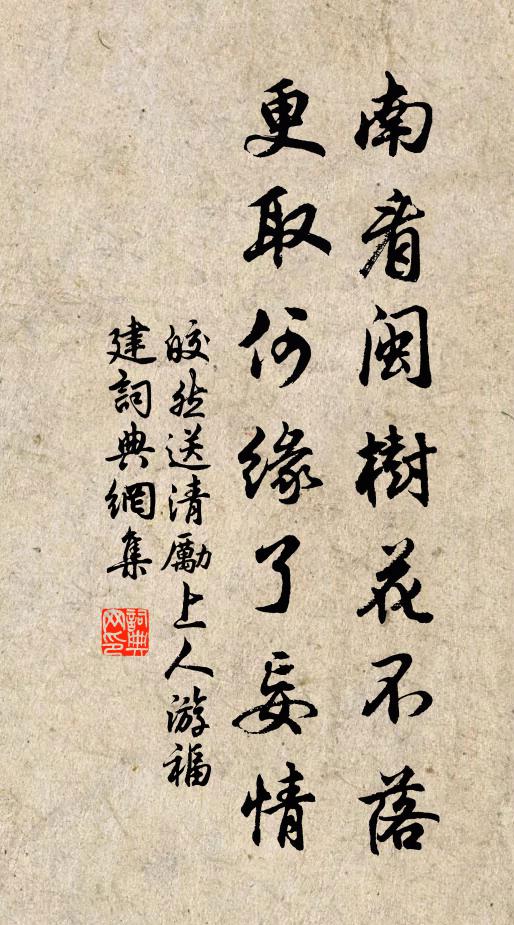 南看閩樹花不落
更取何緣了妄情
皎然送清勵上人游福
建詞典網集
詞典
网印